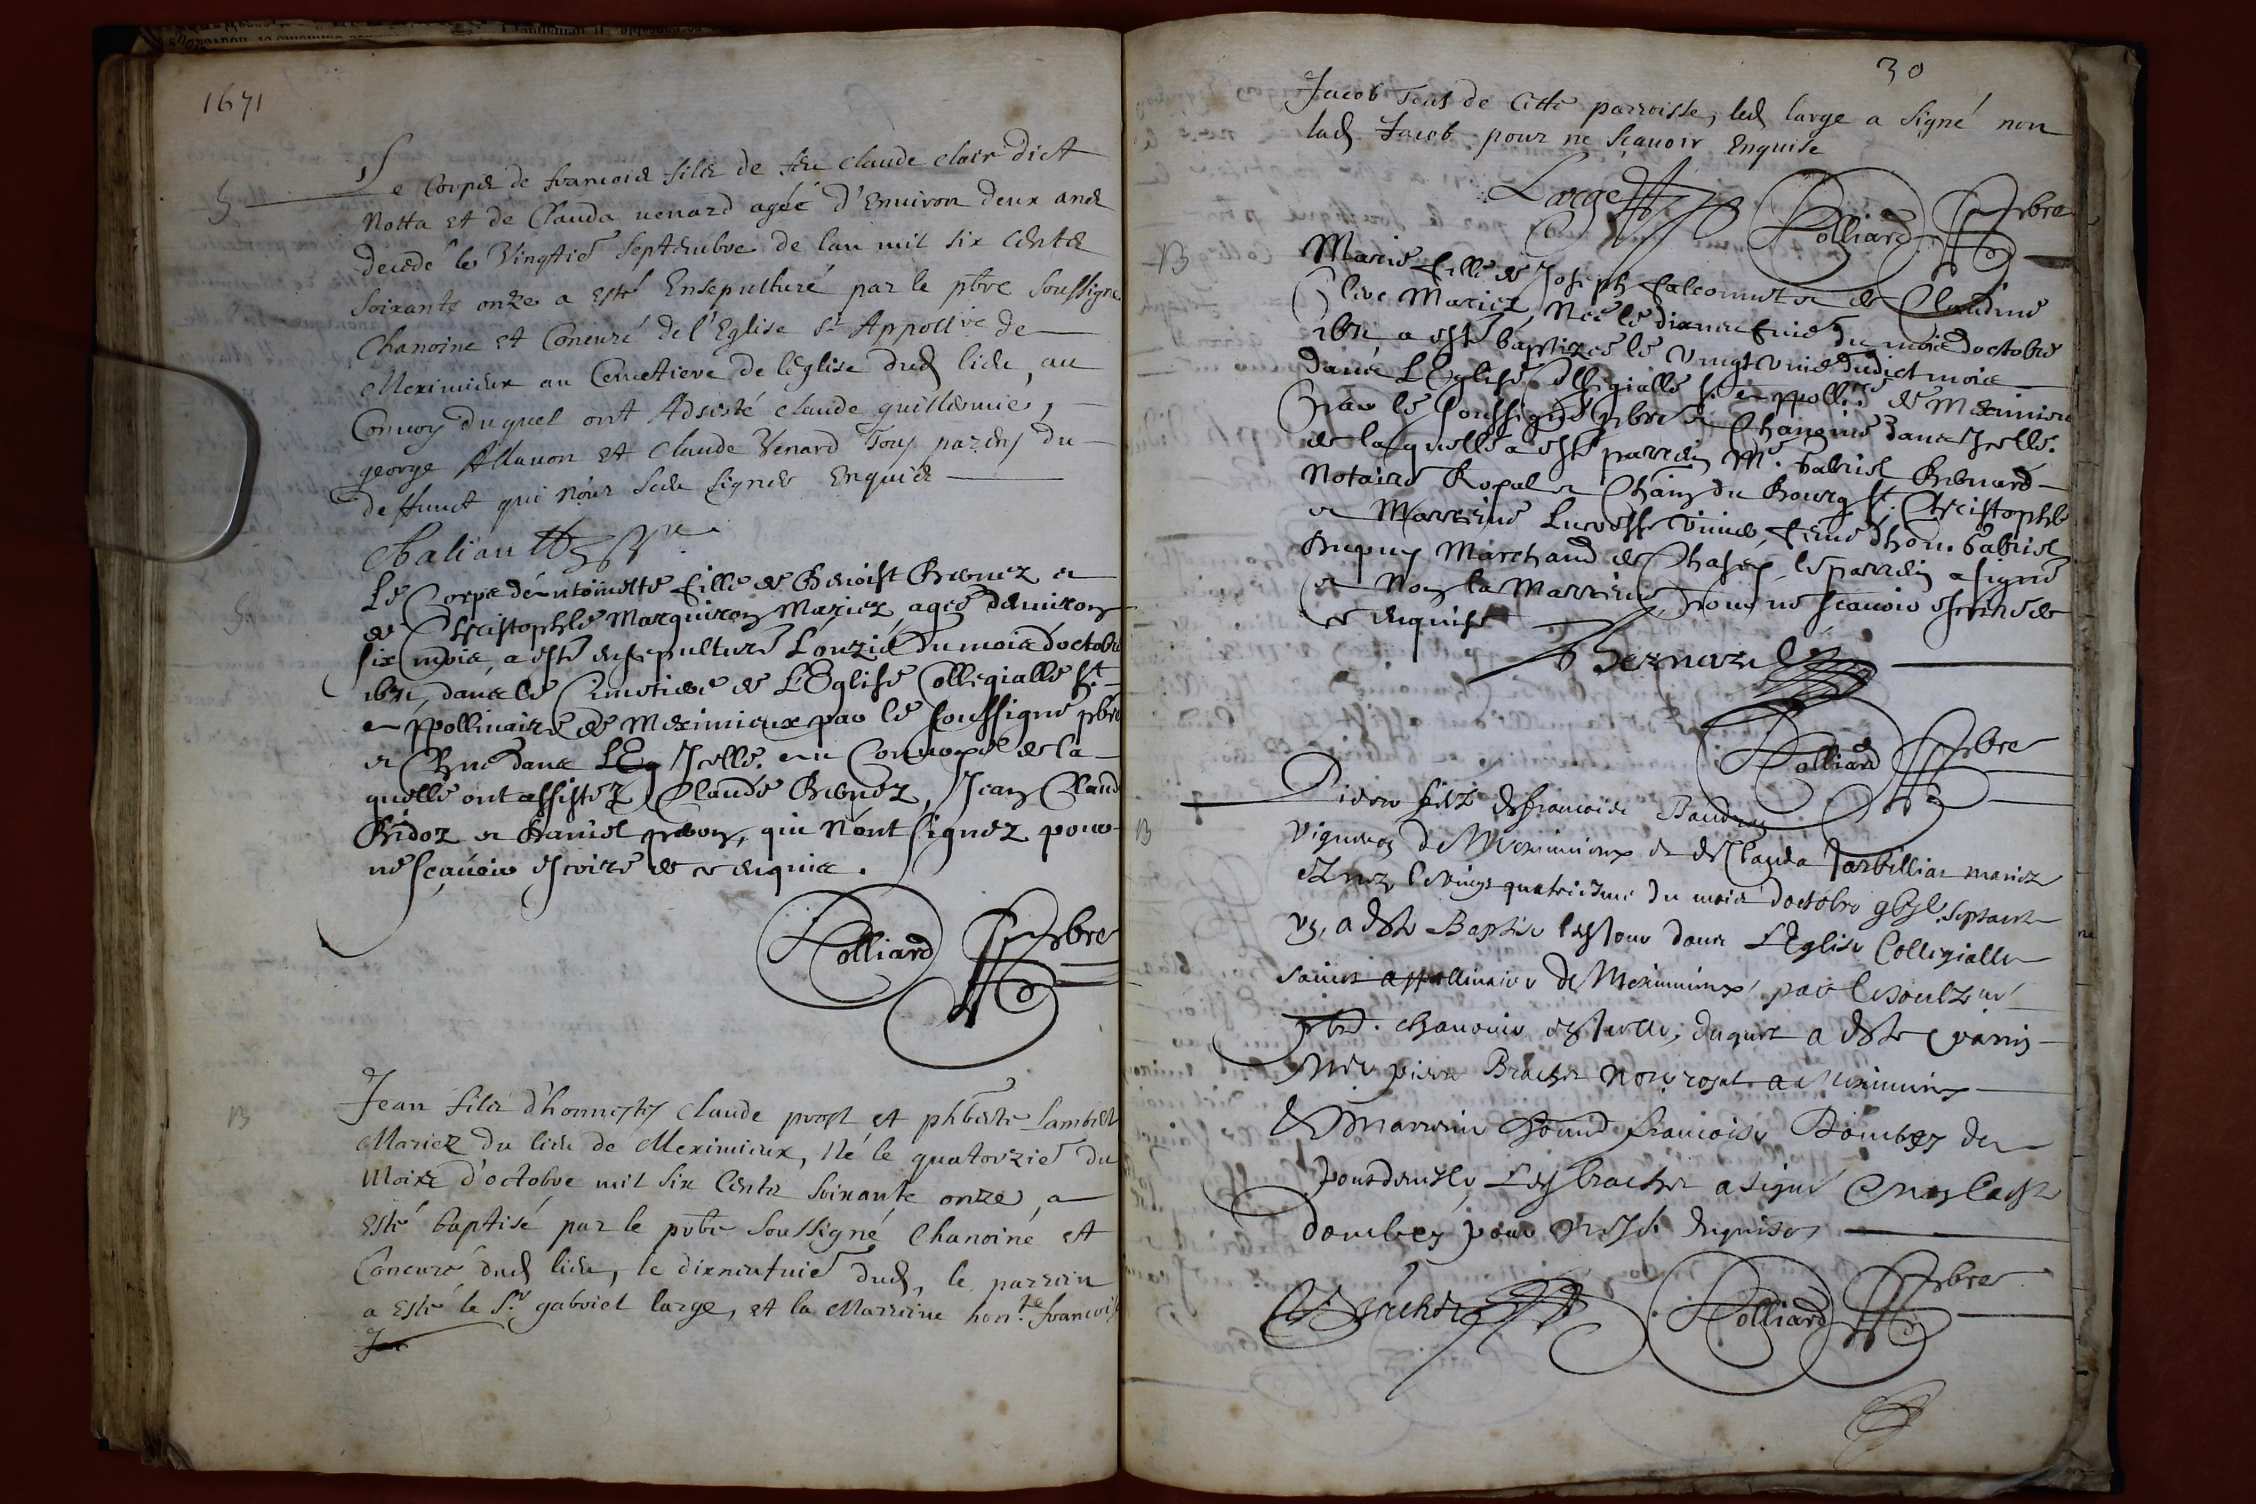 1671
S
Le Corps de francois filz de feu claude clair dict
Notta et de Clauda uenard agéé d'Enuiron deux ans
decedé le Vingtie septembre de lan mil six cents
soixante onze a esté Ensepulturé par le pbre soussigné
Chanoine et Concuré de l'Eglise St Appollre de
Meximieux au Cemetiere de léglise dud lieu, au
Conuoy duquel ont Adsisté claude guillermie,
george Allauon et claude Venard Tous parens du
deffunct qui n'ont sceu signer Enquis
Chaliand pbre
S
Le Corps d'éntoinette fille de Benoist Brunez et
de Christophle Marquiron Mariez, agée d'emiron
six mois, a esté ensepulturé L'onzie du mois d'octobre
1671, dans le Cimetiere de L'Eglise Collegialle St
Appollinaire de Meximieux par le soussigné pbre
et Chne dans LEg Jcelle. au Conuoy de la
quelle ont assistez Claude Brunez, Jean Claud
Bidoz et Daniel, qui n'ont signez pour
ne sçauoir escrire de ce enquis.
Rolliard pbre
B
Jean filz d'honnestes claude prost et phberte Lambert
Mariez du lieu de Meximieux, Né le quatorzie du
Mois d'octobre mil six Cents soixante onze, a
esté baptisé par le pbre soussigné Chanoine et
Concuré dud lieu, le dixneufuie dud, le parrein
a esté le Sr gabriel large, et la Marreine honte francoise
Jac
30
Jacob Tous de cette parroisse, led large a signé non
lad Jacob pour ne sçauoir Enquise
Large Rolliard pbre
B
Marie fille de Joseph falconnet et de Claudine
Cleve Mariez, Née le dixneufuie du mois doctobre
1671, a esté baptizée le vingt unie dudict mois
dans L'Eglise Collegialle St appollre de Meximieu
par le soussigné pbre et Chanoine dans Jcelle.
de laquelle a esté parrein Me Gabriel Bernard
Notaire Royal et Chain du Bourg St Christophle
et Marreine femme d'hon. Gabriel
Dupuy Marchand de Chasey, le parrein a signé
et non la Marreine pour ne sçauoir escrire de
ce enquise
Bernard
Rolliard pbre
B
Pierre filz de francois Baudran
Vigneron de Meximieux et de Clauda Jarbilliat mariez
et nez le vingt quatriesme du mois d'octobre septante
vn, a esté Baptise led Jour dans L'Eglise Collegialle
sainct appollinaire de Meximieux par le soubzné
pbre. chanoine en Jcelle; duquel a esté parrin
Me pierre Brachet Nore royal a Meximieux
et marreine honne francoise Dombey de
, Led brachet a signé et non lad
dombey pour enquise
Brachet Rolliard pbre